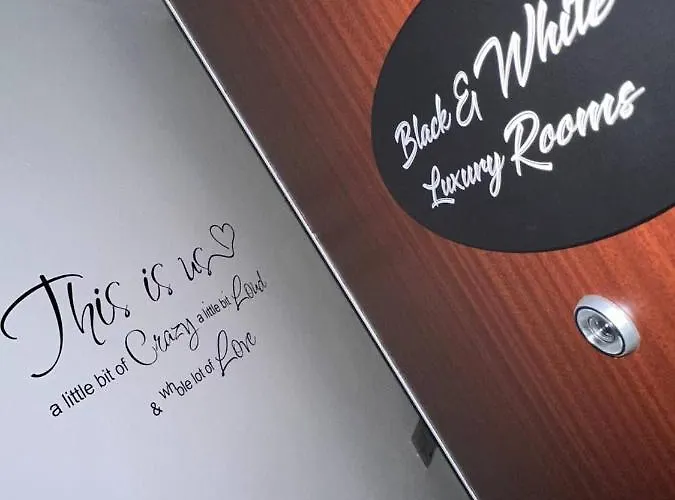 Black & White
Luxury Rooms
This is us
a little bit of Crazy a little bit Loud
& whole lot of Love